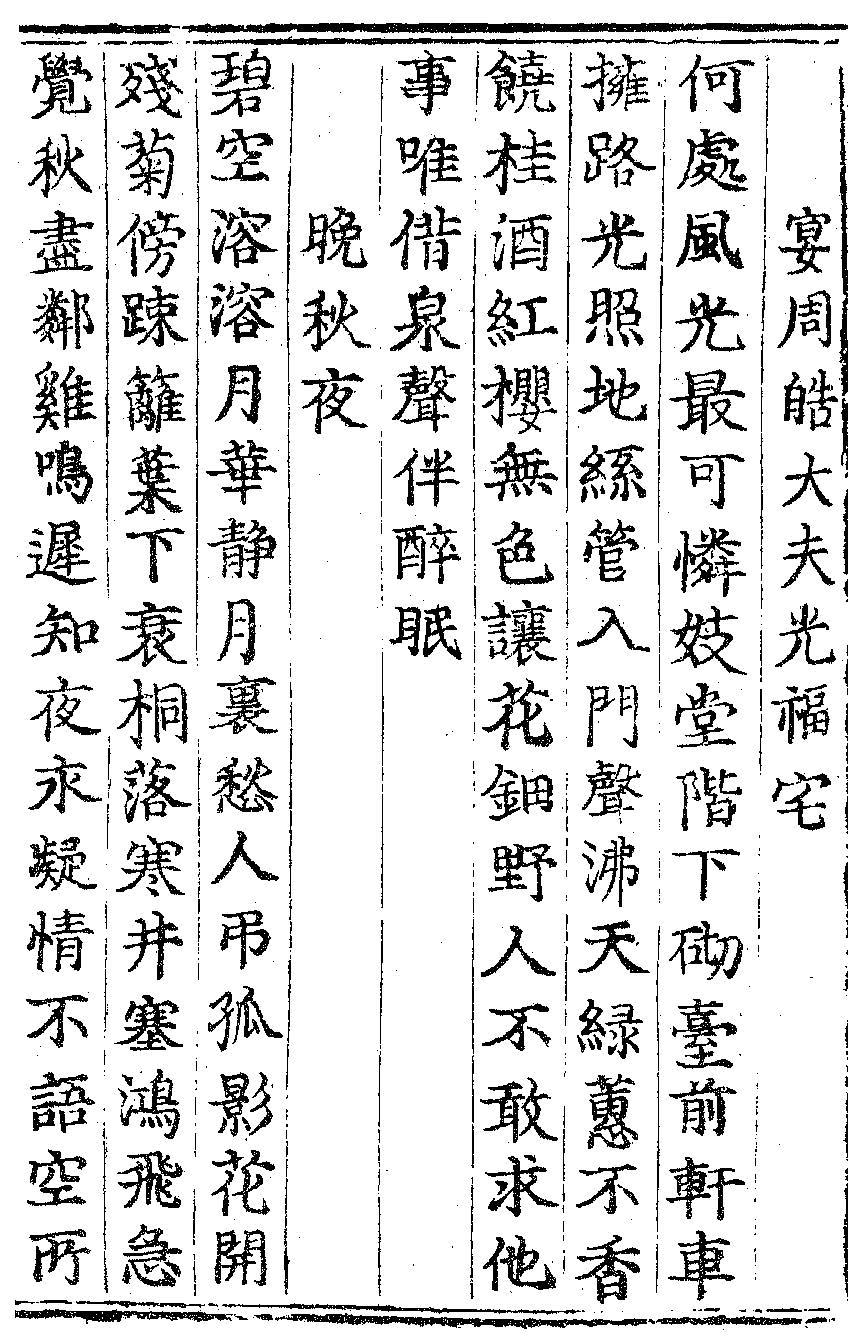 宴周皓大夫光福宅
何處風光最可憐妓堂階下砌臺前軒車
擁路光照地絲管入門聲沸天緑蕙不香
饒桂酒紅櫻無色讓花鈿野人不敢求他
事唯借泉聲伴醉眠
晚秋夜
碧空溶溶月華静月裏愁人弔孤影花開
殘菊傍踈籬葉下衰桐落寒井塞鴻飛急
覺秋盡鄰雞鳴遲知夜永凝情不語空所